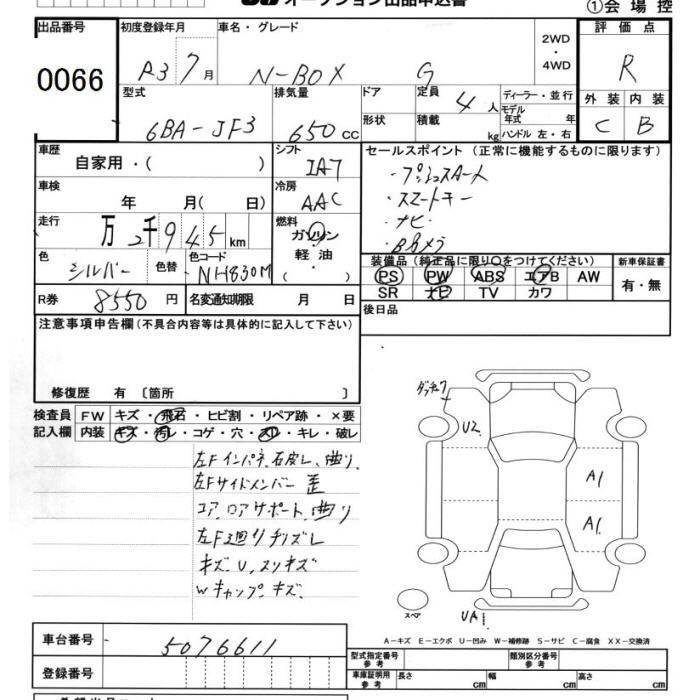 オークション出品申込書
①会場控
出品番号
0066
初度登録年月
R3 7月
車名・グレード
N-BOX G
2WD
・
4WD
評価点
R
外装 内装
C B
型式
6BA-JF3
排気量
650 CC
ドア
形状
定員 4人
積載 kg
ディーラー・並行
モデル
年式 年
ハンドル 左・右
車歴
自家用・( )
シフト
IA7
車検
年 月( 日)
冷房
AAC
走行
万 2千945 km
燃料
ガソリン
軽油
( ・ )
色
シルバー
色替
色コード
NH830M
R券 8550円
名変通知期限 月 日
セールスポイント (正常に機能するものに限ります)
・プッシュスタート
・スマートキー
・ナビ
・Bカメラ
装備品(純正品に限り〇をつけてください)
PS PW ABS エアB AW
SR ナビ TV カワ
新車保証書
有・無
後日品
注意事項申告欄(不具合内容等は具体的に記入して下さい)
修復歴 有 〔箇所 〕
検査員
記入欄
FW キズ・飛石・ヒビ割・リペア跡・×要
内装 キズ・汚レ・コゲ・穴・スレ・キレ・破レ
左Fインパネ、右皮レ、曲り
左Fサイドメンバー 歪
コア、ロアサポート、曲り
左F廻りチリズレ
キズ、U、スリキズ
Wキャップ、キズ
U2
A1
A1
UA1
スペア
A－キズ E－エクボ U－凹み W－補修跡 S－サビ C－腐食 XX－交換済
車台番号
5076611
登録番号
型式指定番号
参考
類別区分番号
参考
車庫証明用
参考
長さ cm
幅 cm
高さ cm